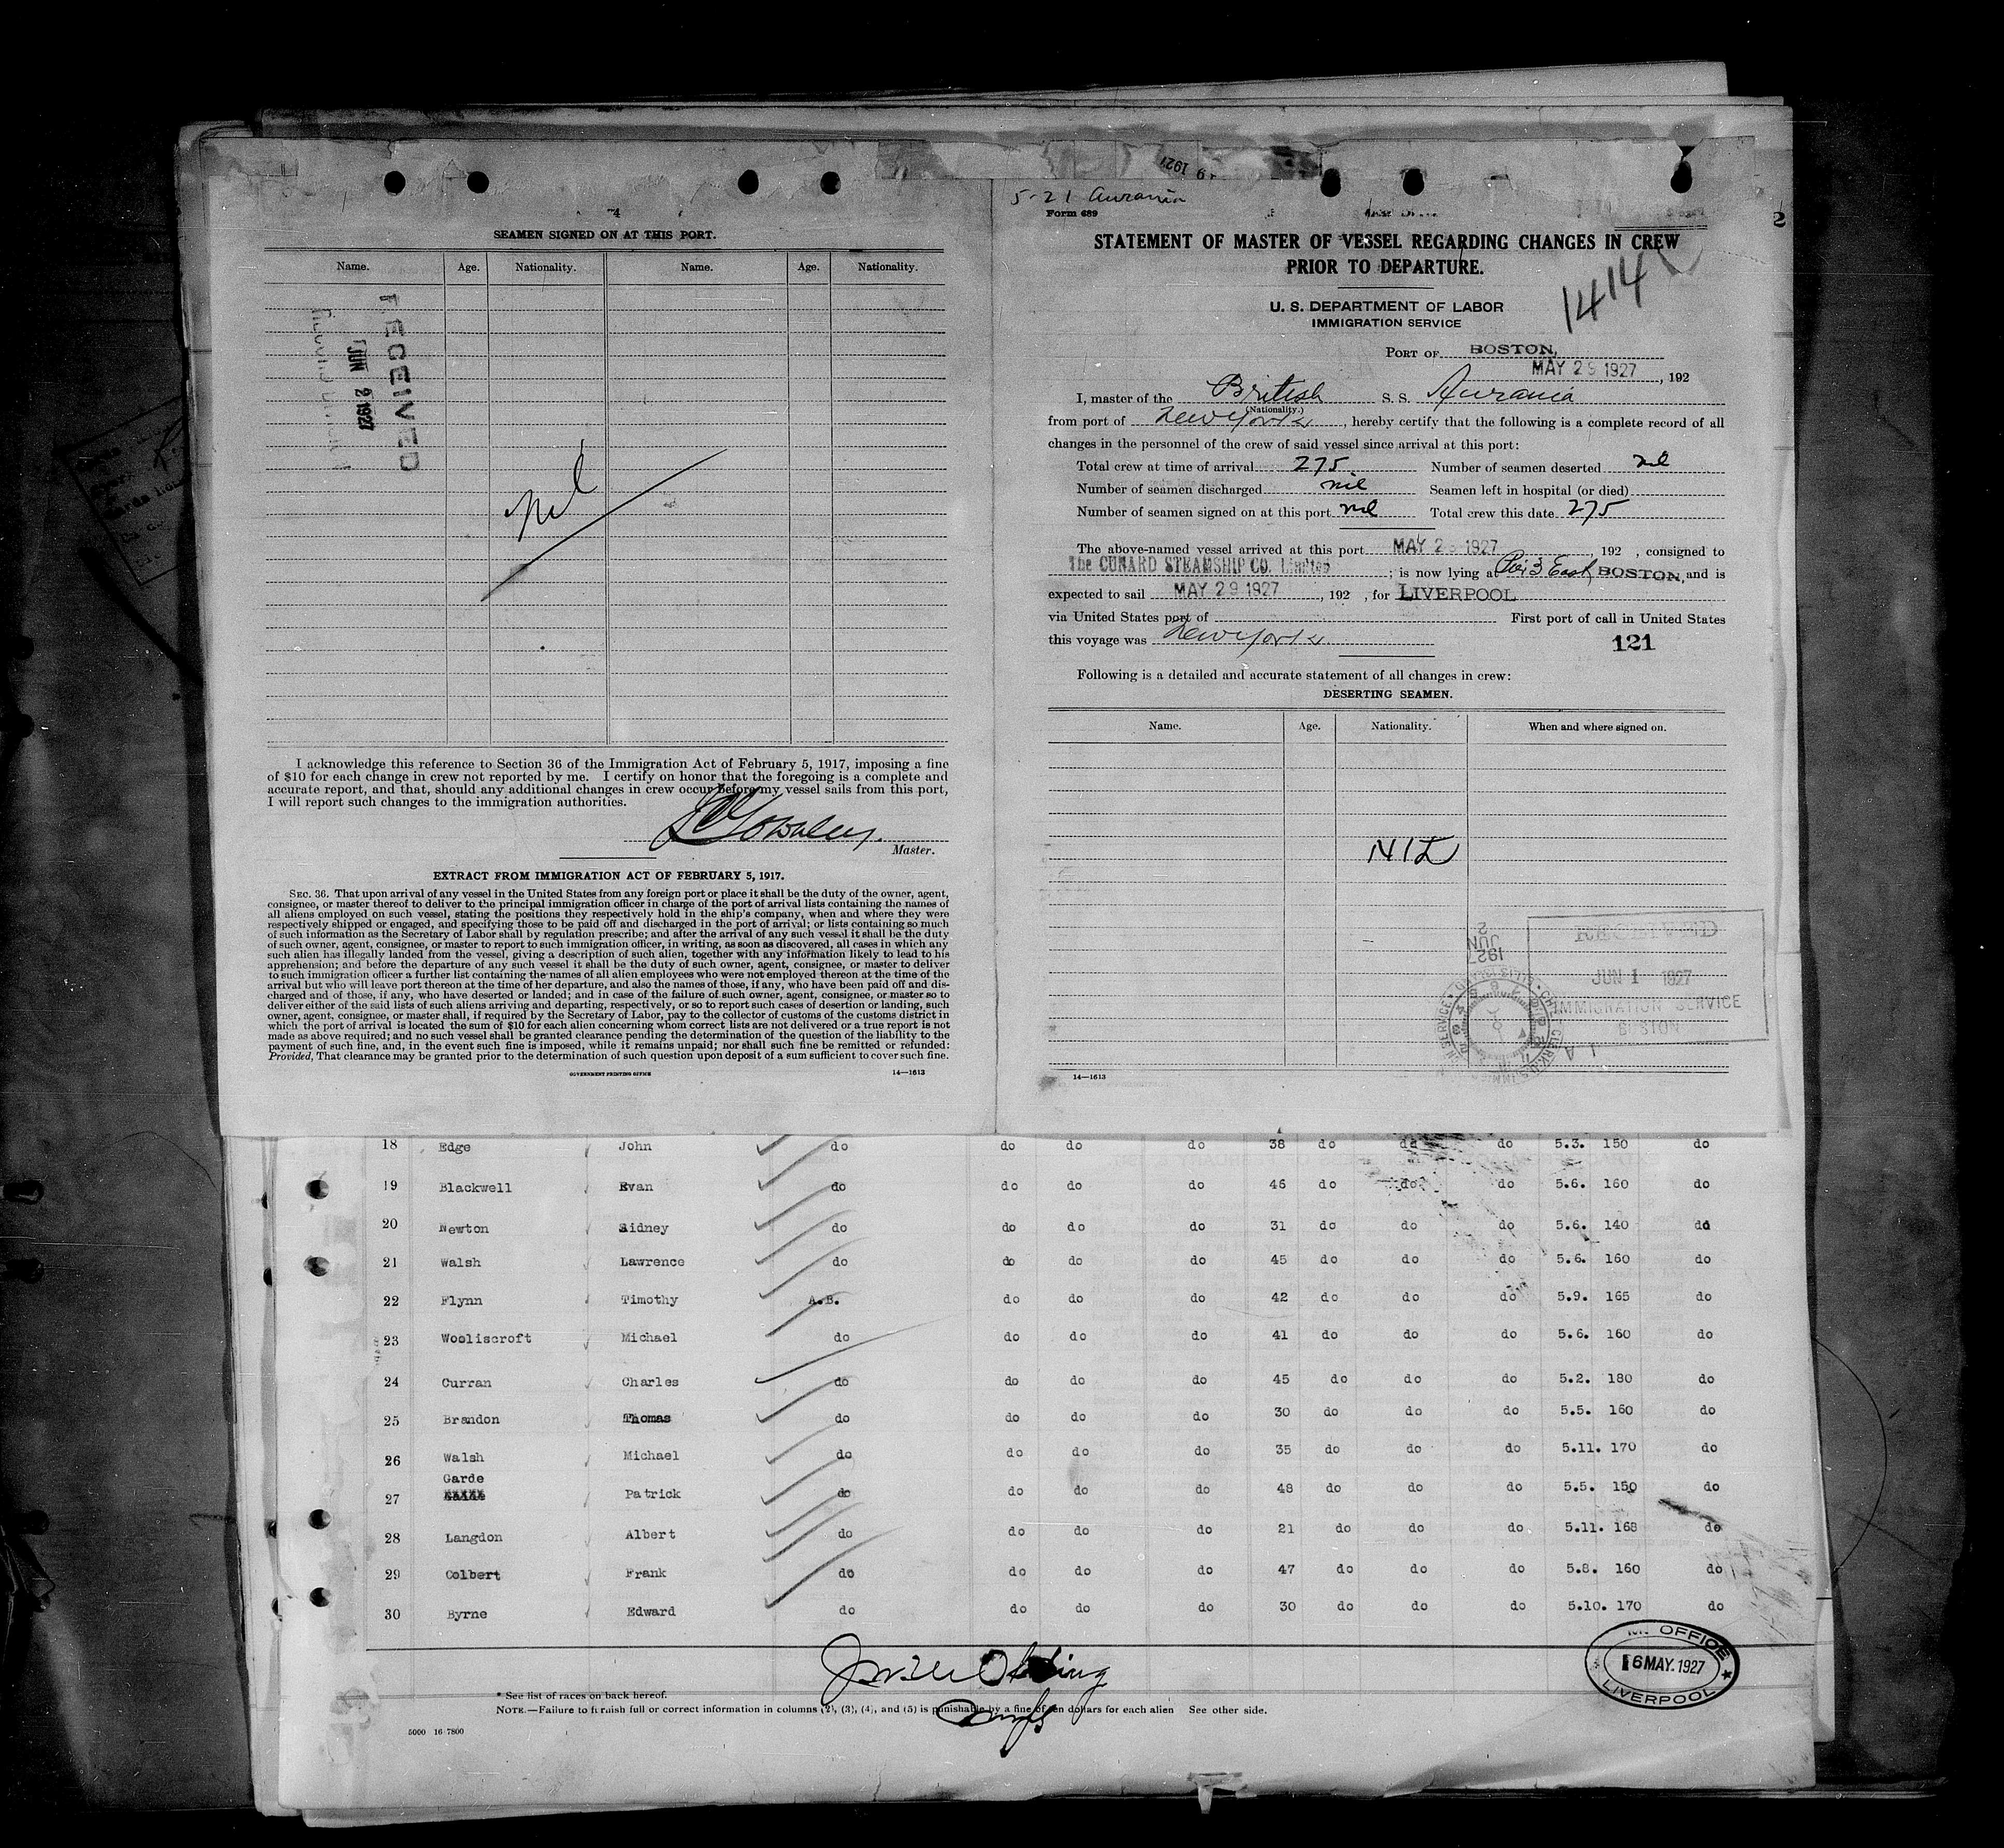 4
SEAMEN SIGNED ON AT THIS PORT.
Name. Age. Nationality. Name. Age. Nationality.
RECEIVED
JUN 2 1927
nil
I acknowledge this reference to Section 36 of the Immigration Act of February 5, 1917, imposing a fine
of $10 for each change in crew not reported by me. I certify on honor that the foregoing is a complete and
accurate report, and that, should any additional changes in crew occur before my vessel sails from this port,
I will report such changes to the immigration authorities.
Master.
EXTRACT FROM IMMIGRATION ACT OF FEBRUARY 5, 1917.
SEC. 36. That upon arrival of any vessel in the United States from any foreign port or place it shall be the duty of the owner, agent,
consignee, or master thereof to deliver to the principal immigration officer in charge of the port of arrival lists containing the names of
all aliens employed on such vessel, stating the positions they respectively hold in the ship's company, when and where they were
respectively shipped or engaged, and specifying those to be paid off and discharged in the port of arrival; or lists containing so much
of such information as the Secretary of Labor shall by regulation prescribe; and after the arrival of any such vessel it shall be the duty
of such owner, agent, consignee, or master to report to such immigration officer, in writing, as soon as discovered, all cases in which any
such alien has illegally landed from the vessel, giving a description of such alien, together with any information likely to lead to his
apprehension; and before the departure of any such vessel it shall be the duty of such owner, agent, consignee, or master to deliver
to such immigration officer a further list containing the names of all alien employees who were not employed thereon at the time of the
arrival but who will leave port thereon at the time of her departure, and also the names of those, if any, who have been paid off and dis-
charged and of those, if any, who have deserted or landed; and in case of the failure of such owner, agent, consignee, or master so to
deliver either of the said lists of such aliens arriving and departing, respectively, or so to report such cases of desertion or landing, such
owner, agent, consignee, or master shall, if required by the Secretary of Labor, pay to the collector of customs of the customs district in
which the port of arrival is located the sum of $10 for each alien concerning whom correct lists are not delivered or a true report is not
made as above required; and no such vessel shall be granted clearance pending the determination of the question of the liability to the
payment of such fine, and, in the event such fine is imposed, while it remains unpaid; nor shall such fine be remitted or refunded:
Provided, That clearance may be granted prior to the determination of such question upon deposit of a sum sufficient to cover such fine.
GOVERNMENT PRINTING OFFICE 14—1613
5-21 Aurania
Form 689
STATEMENT OF MASTER OF VESSEL REGARDING CHANGES IN CREW
PRIOR TO DEPARTURE.
1414
U. S. DEPARTMENT OF LABOR
IMMIGRATION SERVICE
PORT OF BOSTON,
MAY 29 1927, 192
I, master of the British S. S. Aurania
(Nationality.)
from port of New York, hereby certify that the following is a complete record of all
changes in the personnel of the crew of said vessel since arrival at this port:
Total crew at time of arrival 275 Number of seamen deserted nil
Number of seamen discharged nil Seamen left in hospital (or died)
Number of seamen signed on at this port nil Total crew this date 275
The above-named vessel arrived at this port MAY 2 1927, 192 , consigned to
The CUNARD STEAMSHIP CO. Limited ; is now lying at Pier 3 East, BOSTON, and is
expected to sail MAY 29 1927, 192 , for LIVERPOOL
via United States port of First port of call in United States
this voyage was New York
121
Following is a detailed and accurate statement of all changes in crew:
DESERTING SEAMEN.
Name. Age. Nationality. When and where signed on.
NIL
JUN 2 1927
RECEIVED
JUN 1 1927
IMMIGRATION SERVICE
BOSTON
14—1613
18 Edge John do do do do 38 do do do 5.3. 150 do
19 Blackwell Evan do do do do 46 do do do 5.6. 160 do
20 Newton Sidney do do do do 31 do do do 5.6. 140 do
21 Walsh Lawrence do do do do 45 do do do 5.6. 160 do
22 Flynn Timothy A.B. do do do 42 do do do 5.9. 165 do
23 Wooliscroft Michael do do do do 41 do do do 5.6. 160 do
24 Curran Charles do do do do 45 do do do 5.2. 180 do
25 Brandon Thomas do do do do 30 do do do 5.5. 160 do
26 Walsh Michael do do do do 35 do do do 5.11. 170 do
Garde
27 Patrick do do do do 48 do do do 5.5. 150 do
28 Langdon Albert do do do do 21 do do do 5.11. 168 do
29 Colbert Frank do do do do 47 do do do 5.8. 160 do
30 Byrne Edward do do do do 30 do do do 5.10. 170 do
* See list of races on back hereof.
NOTE.—Failure to furnish full or correct information in columns (2), (3), (4), and (5) is punishable by a fine of ten dollars for each alien See other side.
5000 16 7800
OFFICE
16 MAY. 1927
LIVERPOOL